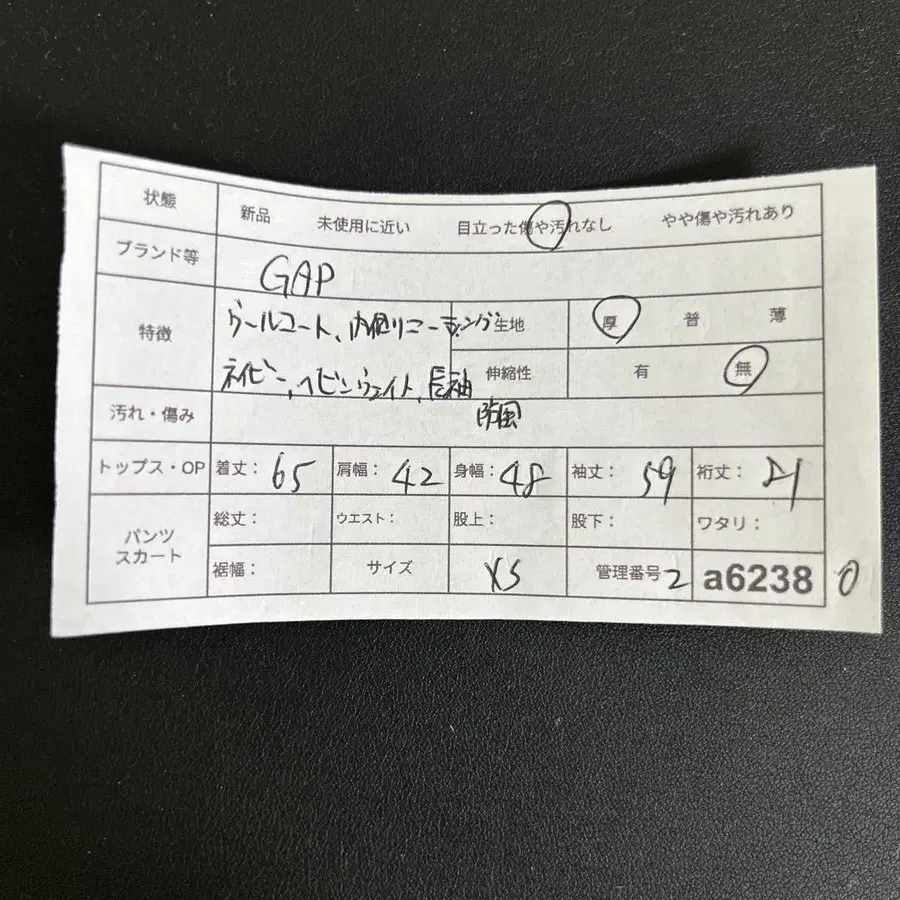 状態 新品 未使用に近い 目立った傷や汚れなし やや傷や汚れあり
ブランド等 GAP
特徴 ウールコート、内側リニーディング 生地 厚 普 薄
ネイビー、ヘビンウェイト、長袖 伸縮性 有 無
防風
汚れ・傷み
トップス・OP 着丈: 65 肩幅: 42 身幅: 48 袖丈: 59 裄丈: 81
パンツ スカート 総丈: ウエスト: 股上: 股下: ワタリ:
裾幅: サイズ XS 管理番号 2 a6238 0